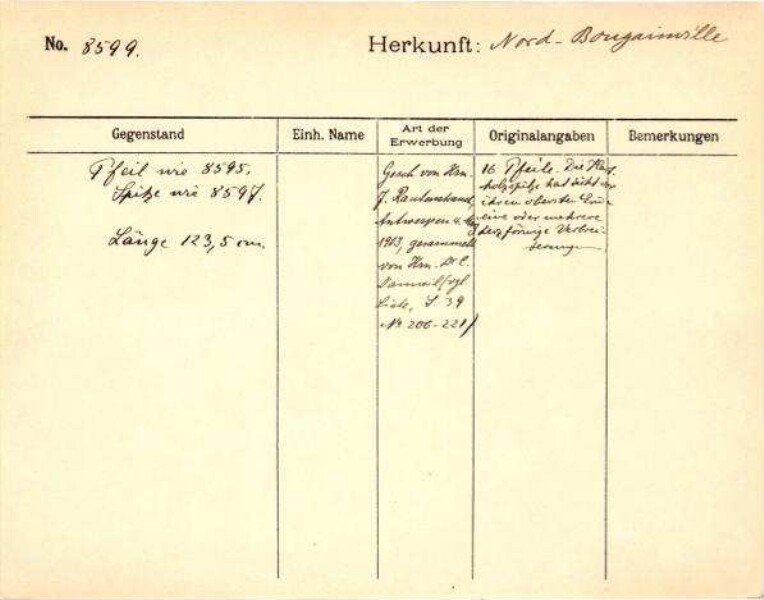 No. 8599.
Herkunft: Nord-Bougainville
Gegenstand
Einh. Name
Art der Erwerbung
Originalangaben
Bemerkungen
Pfeil wie 8595.
Spitze wie 8597.
Länge 123,5 cm.
Gesch von Hrn.
J. Rautenstrauch,
Antwerpen
1913, gesammelt
von Hrn. Dr C.
Liste, S 39
No 206-221)
16 Pfeile. Die
holzspitze hat dicht
ihren obersten
eine oder mehrere
herzförmige Verbrei-
terungen